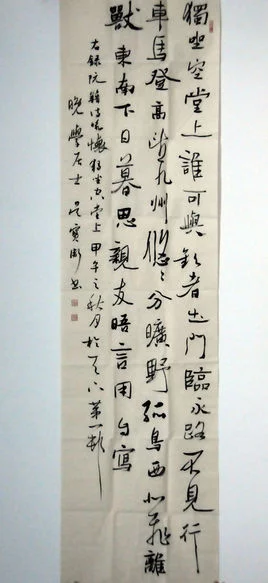 獨坐空堂上誰可與歡者出門臨永路不見行
車馬登高望九州悠〻分曠野孤鳥西北飛離
獸東南下日暮思親友晤言用自寫
右錄阮籍詩詠懷獨坐空堂上甲午之秋月於天下第一邨
晚學居士吳寶書